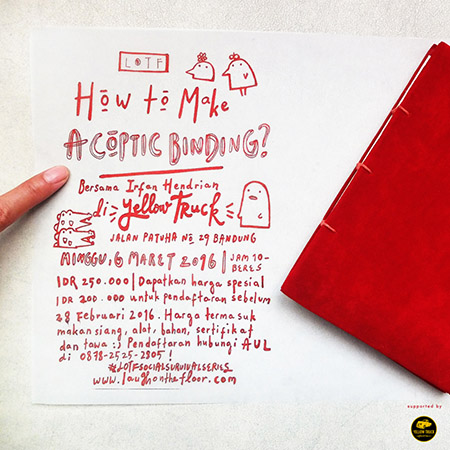 LOTF
HOW to MAKE
A COPTIC BINDING?
Bersama Irfan Hendrian
di Yellow Truck
JALAN PATUHA No 29 BANDUNG
MINGGU, 6 MARET 2016 | JAM 10-
BERES
IDR 250.000 | Dapatkan harga spesial
IDR 200.000 untuk pendaftaran sebelum
28 Februari 2016. Harga termasuk
makan siang, alat, bahan, sertifikat
dan tawa :) Pendaftaran hubungi AUL
di 0878-2525-2805!
#LOTFSOCIALSURVIVALSERIES
www.laughonthefloor.com
supported by
YELLOW TRUCK